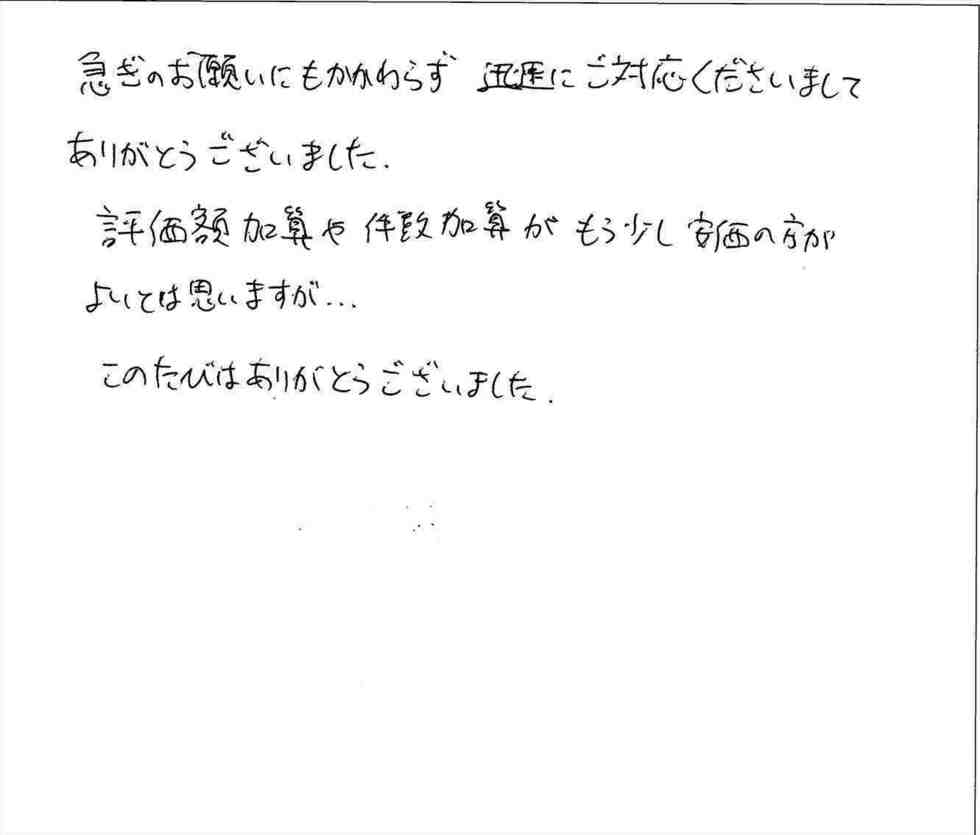 急ぎのお願いにもかかわらず 迅速にご対応くださいまして
ありがとうございました.
評価額加算や件数加算がもう少し安価の方が
よいとは思いますが...
このたびはありがとうございました.